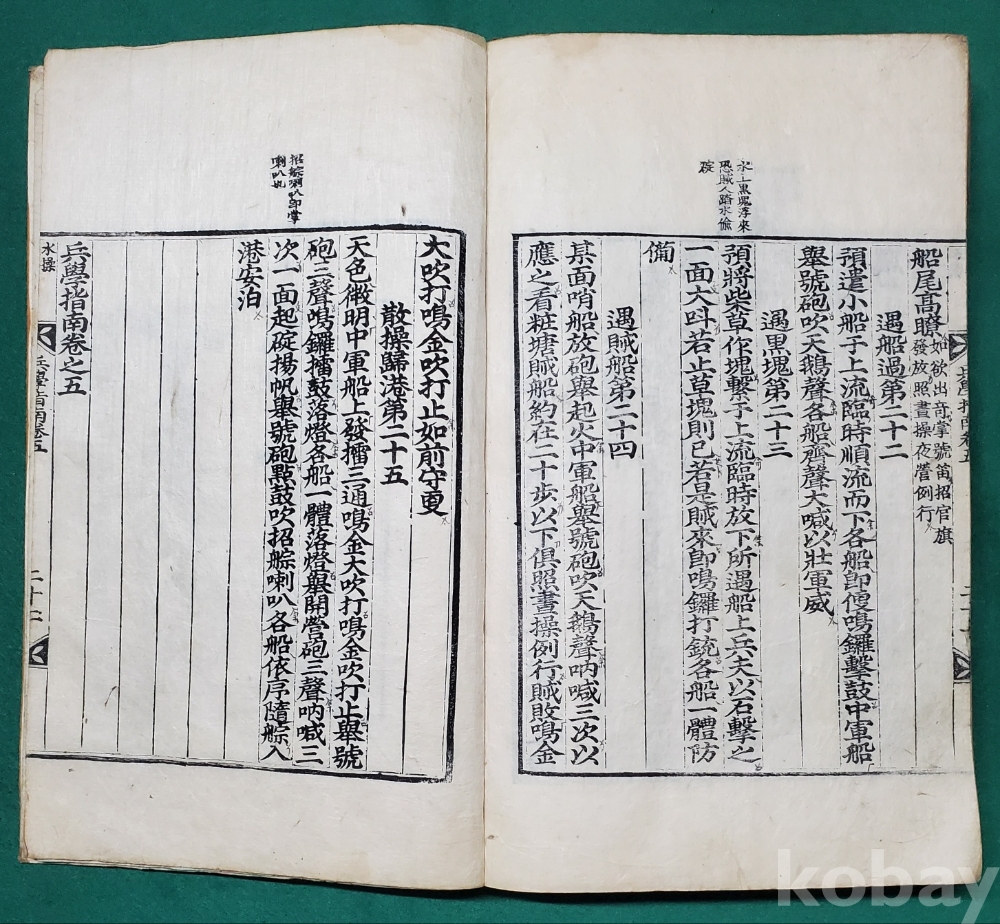 水上黑塊浮來
恐賊人踏水偷
碇
船尾高瞭如欲出奇掌號笛招官旗
發放照晝操夜營例行
遇船過第二十二
預遣小船于上流臨時順流而下各船卽便鳴鑼擊鼓中軍船
舉號砲吹天鵝聲各船齊聲大喊以壯軍威
遇黑塊第二十三
預將柴草作塊繫于上流臨時放下所遇船上兵夫以石擊之
一面大呌若止草塊則已若是賊來卽鳴鑼打銃各船一體防
備
遇賊船第二十四
某面哨船放砲舉起火中軍船舉號砲吹天鵝聲吶喊三次以
應之看粧塘賊船約在二十步以下俱照晝操例行賊敗鳴金
招䑸喇叭卽掌
喇叭也
大吹打鳴金吹打止如前守更
散操歸港第二十五
天色微明中軍船上發擂三通鳴金大吹打鳴金吹打止舉號
砲三聲鳴鑼擂鼓落燈各船一體落燈舉開營砲三聲吶喊三
次一面起碇揚帆舉號砲點鼓吹招䑸喇叭各船依序隨䑸入
港安泊
兵學指南卷之五
水操
兵學指南卷五
二十二
kobay